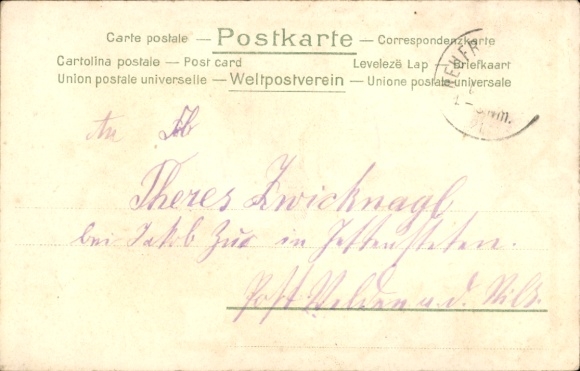 Carte postale — Postkarte — Correspondenzkarte
Cartolina postale — Post card Levelezö Lap — Briefkaart
Union postale universelle — Weltpostverein — Unione postale universale
An
Theres Zwicknagl
bei Jakob in
Post Velden a. d. Vils.